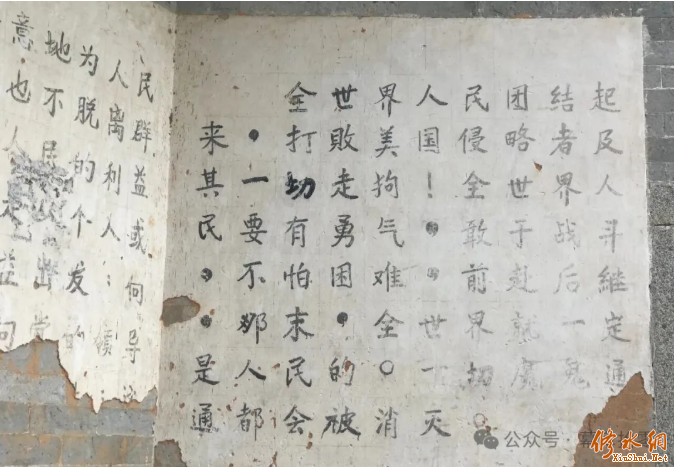 意地为人民
也不脱离群
人民的利益
个人或
益出发：向
向党的领导
全世界人民团结起
来，打敗美国侵略者及
其一切走狗！全世界人
民要有勇气，敢于战斗
，不怕困难，前赴后継
，那末，全世界就一定
是人民的。一切魔鬼通
通都会被消灭。
公众号
修水網
XiuShui.Net